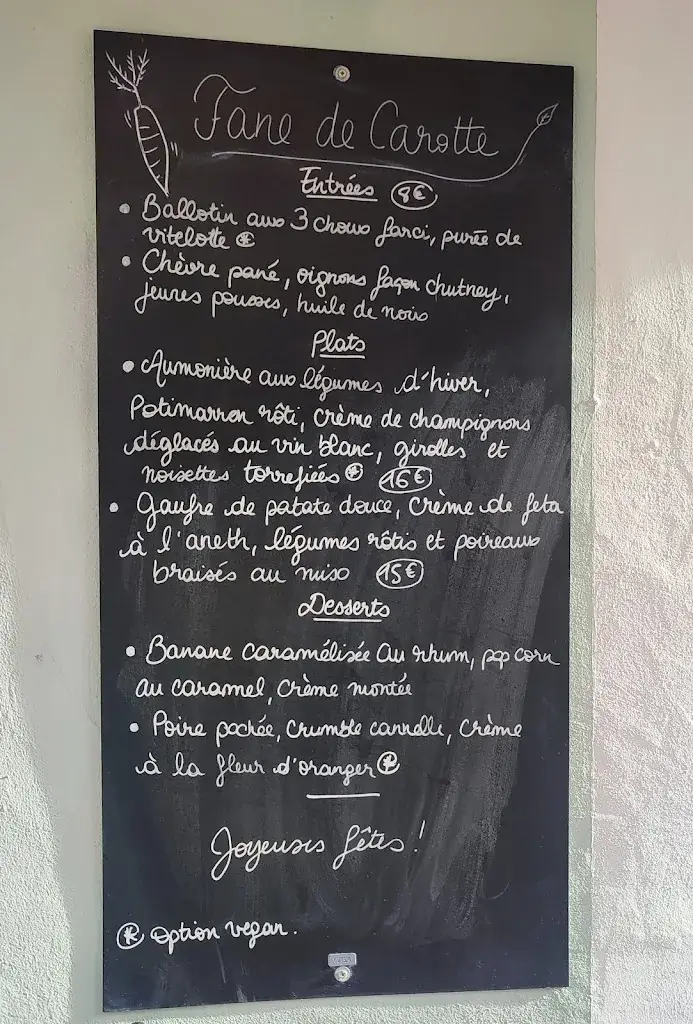 Fane de Carotte
Entrées 8€
• Ballotin aux 3 choux farci, purée de
vitelotte *
• Chèvre pané, oignons façon chutney,
jeunes pousses, huile de noix
Plats
• Aumonière aux légumes d'hiver,
Potimarron rôti, crème de champignons
déglacés au vin blanc, girolles et
noisettes torrefiées * 16€
• Gaufre de patate douce, crème de feta
à l'aneth, légumes rôtis et poireaux
braisés au miso 15€
Desserts
• Banane caramélisée au rhum, pop corn
au caramel, crème montée
• Poire pochée, crumble cannelle, crème
à la fleur d'oranger *
Joyeuses fêtes !
* option vegan.